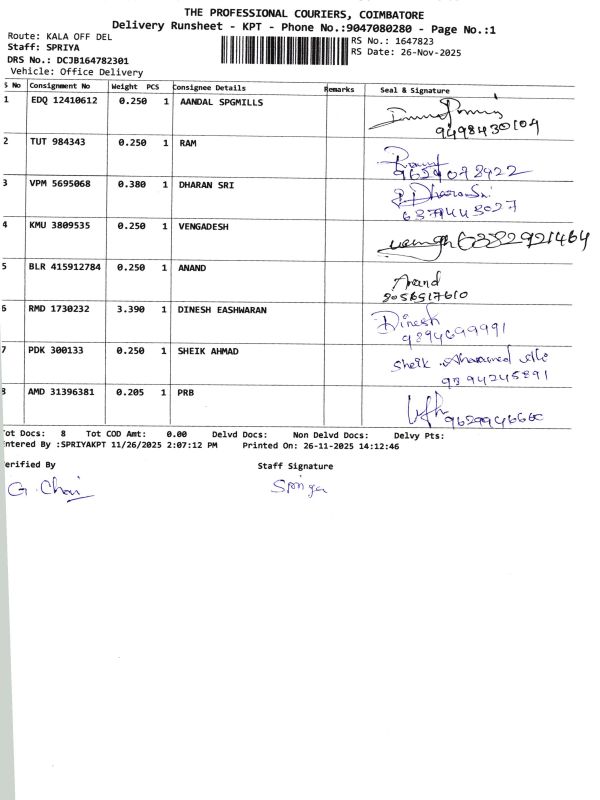 THE PROFESSIONAL COURIERS, COIMBATORE
Delivery Runsheet - KPT - Phone No.:9047080280 - Page No.:1
Route: KALA OFF DEL
Staff: SPRIYA
DRS No.: DCJB164782301
Vehicle: Office Delivery
RS No.: 1647823
RS Date: 26-Nov-2025
S No Consignment No Weight PCS Consignee Details Remarks Seal & Signature
1 EDQ 12410612 0.250 1 AANDAL SPGMILLS
9498430104
2 TUT 984343 0.250 1 RAM
3 VPM 5695068 0.380 1 DHARAN SRI
4 KMU 3809535 0.250 1 VENGADESH
6382921464
5 BLR 415912784 0.250 1 ANAND Anand
8056517610
6 RMD 1730232 3.390 1 DINESH EASHWARAN Dinesh
9894699991
7 PDK 300133 0.250 1 SHEIK AHMAD Sheik
9894245891
8 AMD 31396381 0.205 1 PRB
Tot Docs: 8 Tot COD Amt: 0.00 Delvd Docs: Non Delvd Docs: Delvy Pts:
Entered By :SPRIYAKPT 11/26/2025 2:07:12 PM Printed On: 26-11-2025 14:12:46
erified By Staff Signature
Spriya